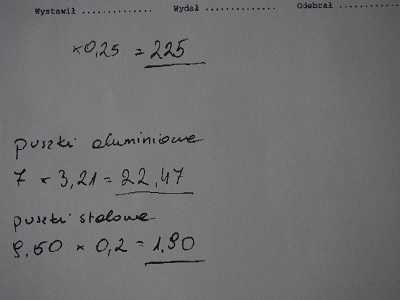 Wystawił .............. Wydał .............. Odebrał ............
×0,25 = 225
puszki aluminiowe
7 × 3,21 = 22,47
puszki stalowe
9,50 × 0,2 = 1,90